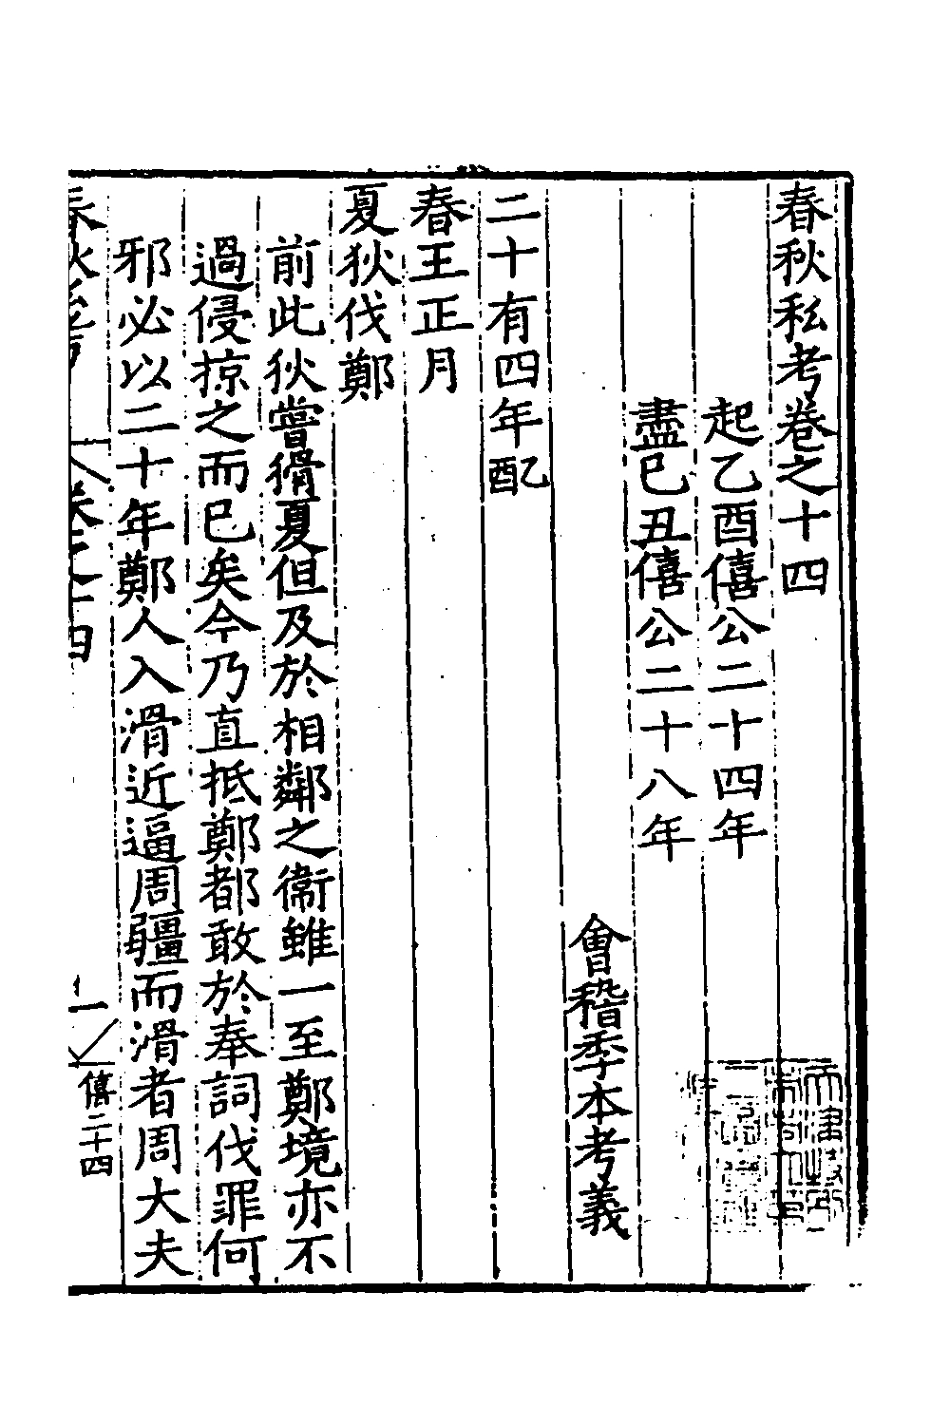 春秋私考卷之十四
起乙酉僖公二十四年
盡巳丑僖公二十八年
會稽季本考義
二十有四年配
春王正月
夏狄伐鄭
前此狄嘗猾夏但及於相鄰之衞雖一至鄭境亦不
過侵掠之而已矣今乃直抵鄭都敢於奉詞伐罪何
邪必以二十年鄭人入滑近逼周疆而滑者周大夫
春秋私考 卷之十四 一 僖二十四